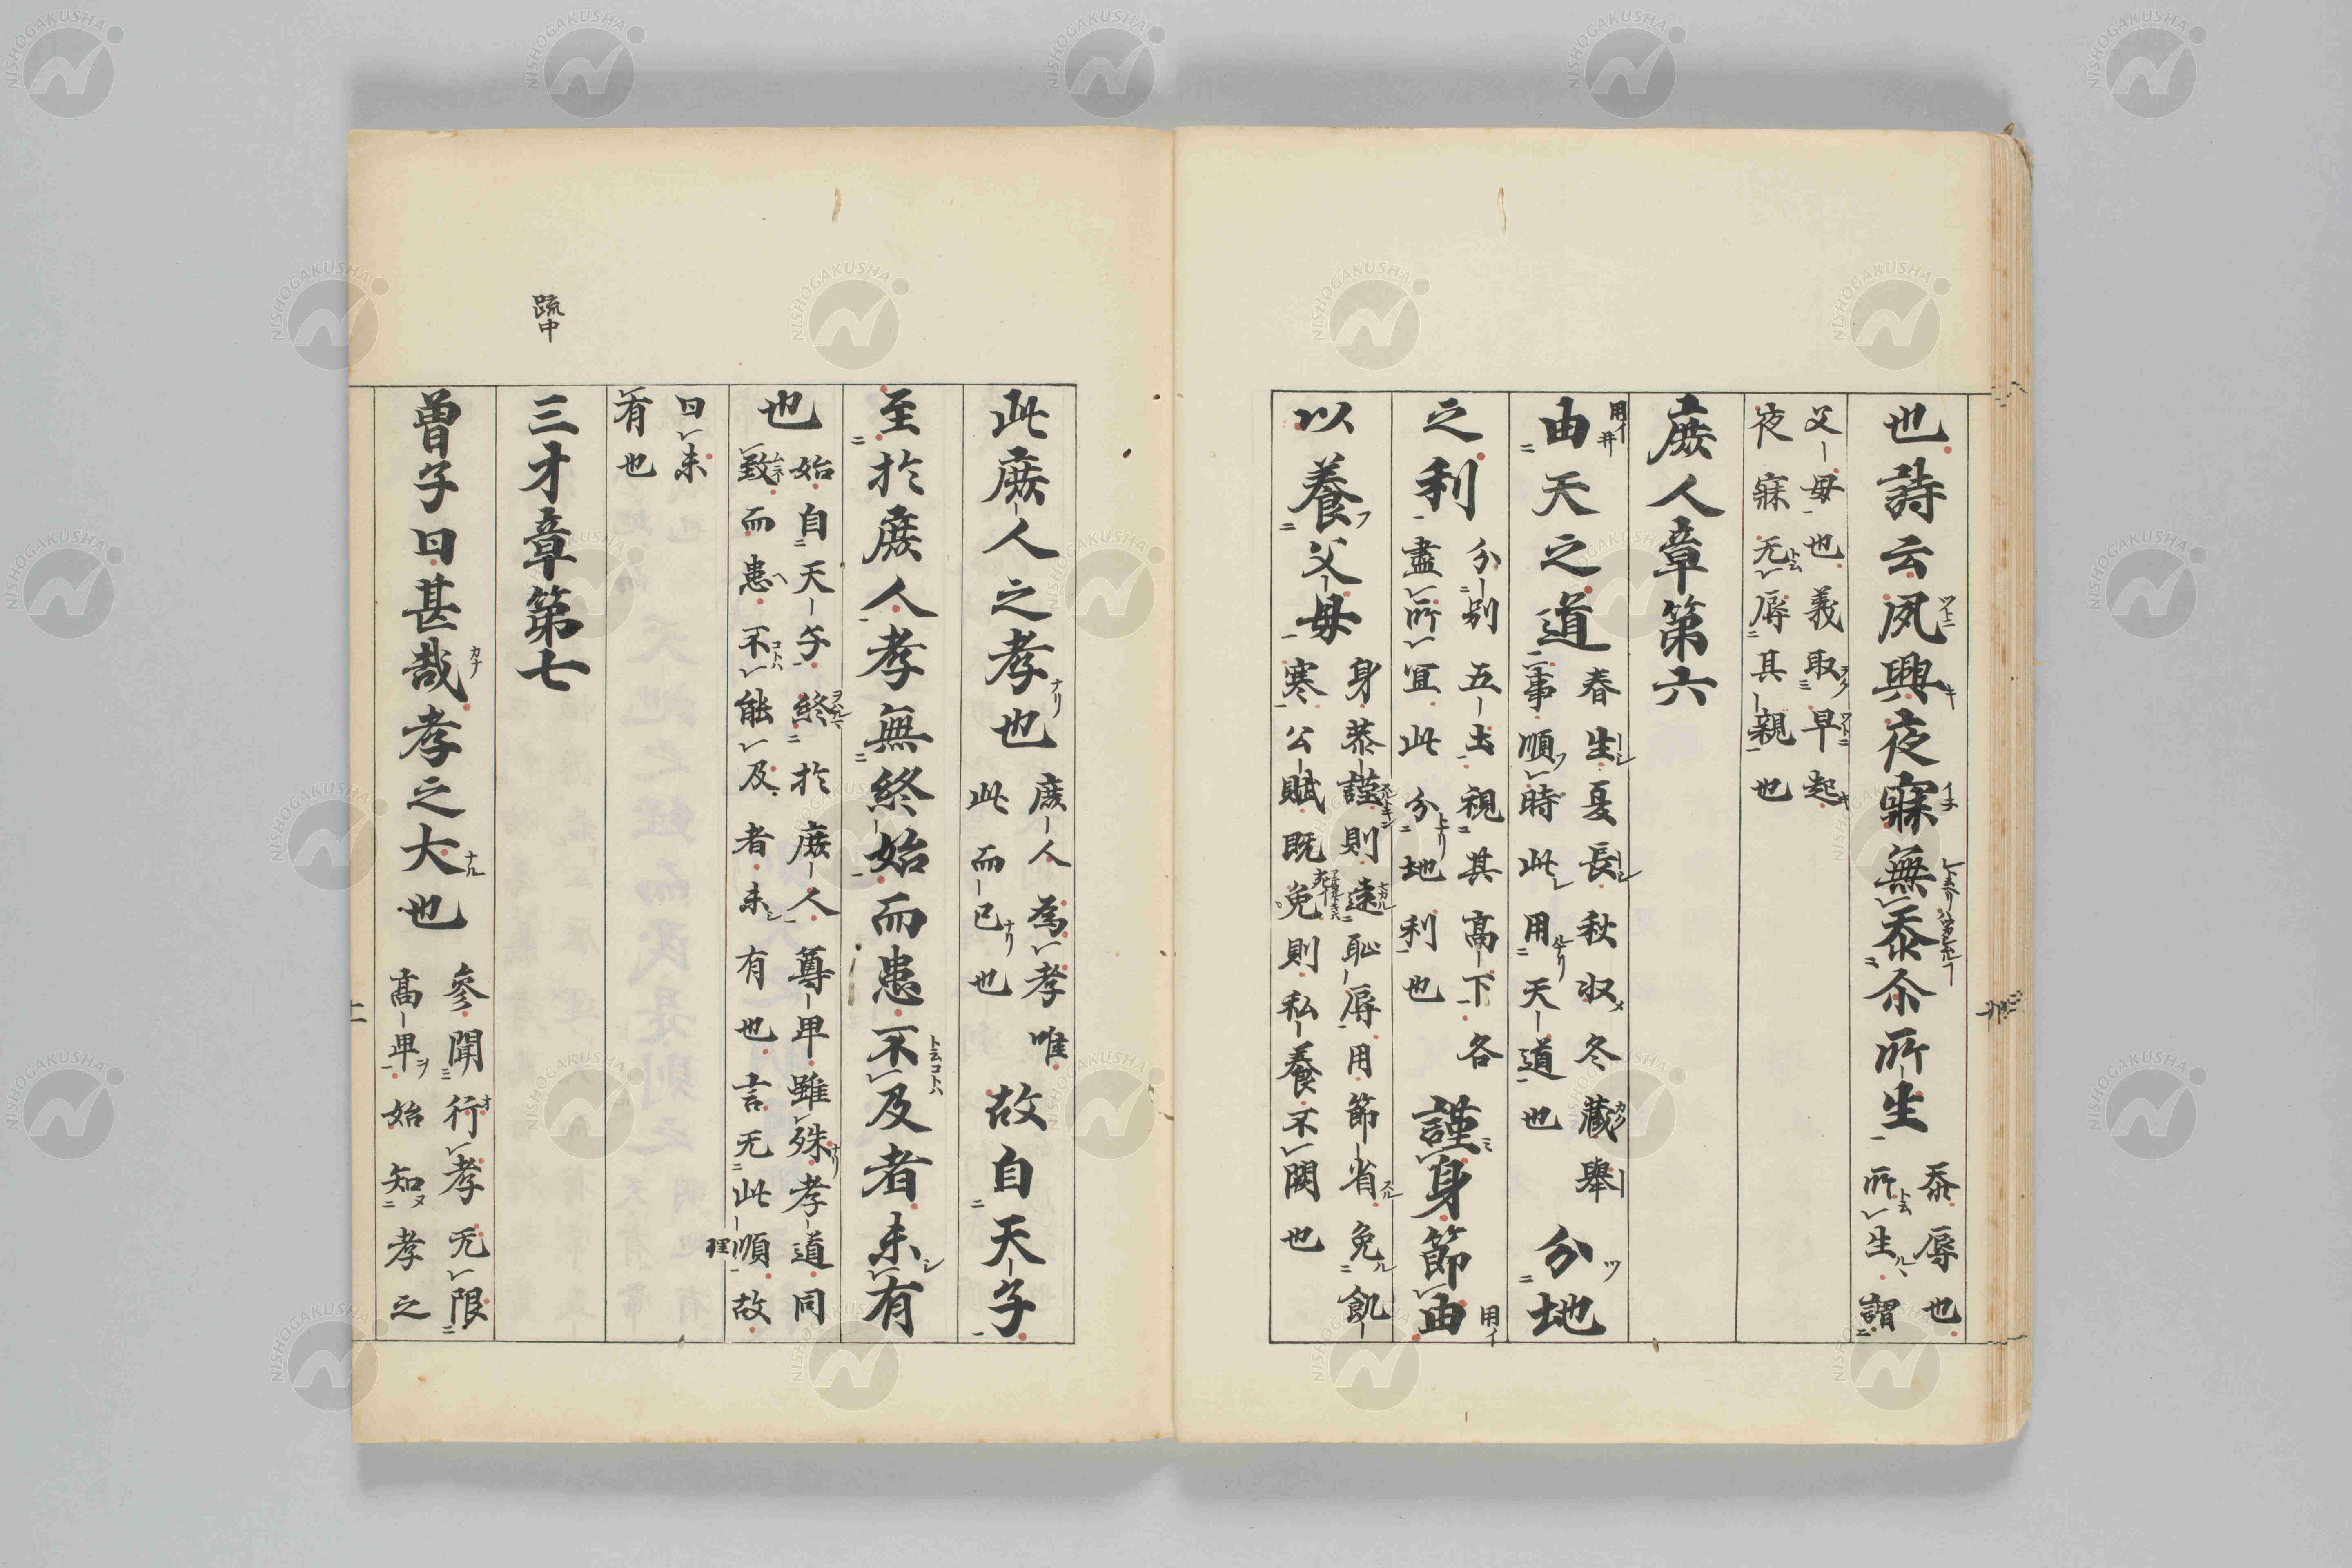 也詩云夙興夜寐無忝尒所生
忝辱也
所生謂
父母也義取早起
夜寐无辱其親也
庶人章第六
由天之道
春生夏長秋収冬蔵舉
事順時此用天道也
分地
之利
分別五土視其高下各
盡所宜此分地利也
謹身節由
以養父母
身恭謹則遠恥辱用節省免飢
寒公賦既免則私養不闕也
此庶人之孝也
庶人為孝唯
此而已也
故自天子
至於庶人孝無終始而患不及者未有
也
始自天子終於庶人尊卑雖殊孝道同
致而患不能及者未有也言无此順故
曰未
有也
三才章第七
曽子曰甚哉孝之大也
參聞行孝无限
高卑始知孝之
疏中
用イ
用イ
理
NISHOGAKUSHA